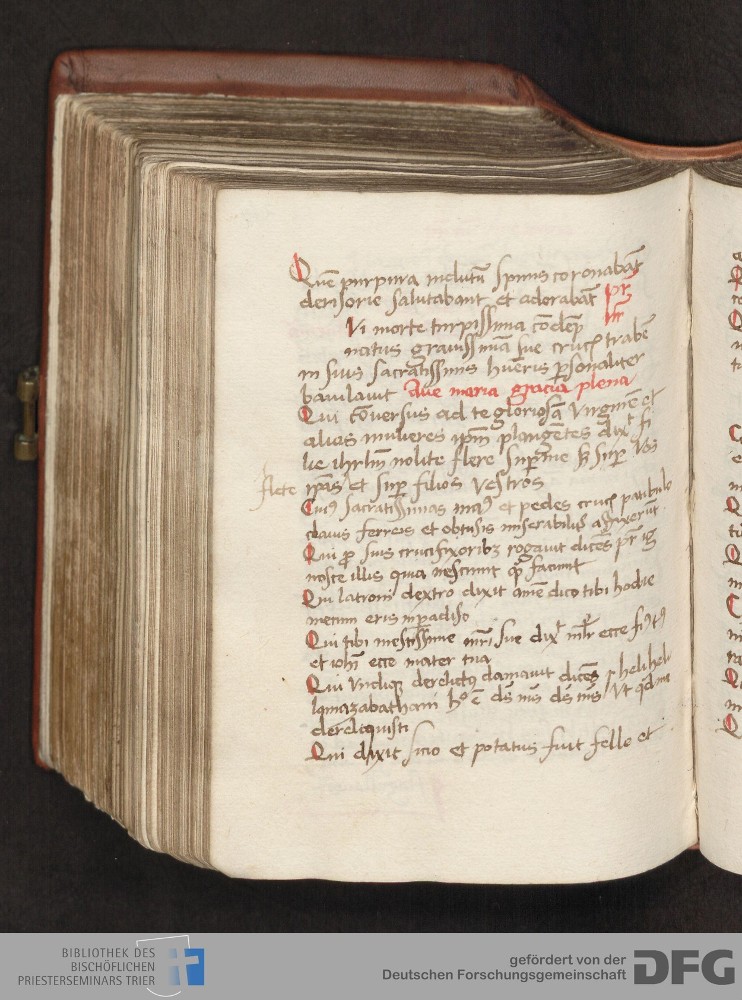 Quē purpura indutū spinis coronabāt
derisorie salutabant et adorabāt pr
nr
Vi morte turpissima cōdēp
natus grauissimā sue crucis trabē
in suis sacratissimis hūeris ꝑsonaliter
baiulauit Aue maria gracia plena
Qui cōuersus ad te gloriosā virginē et
alias mulieres ipm̄ plangētes dixit fi
lie ihrlm̄ nolite flere suꝑ me sꝫ suꝑ vos
flete ipas et suꝑ filios vestros
Cuiꝰ sacratissimas manꝰ et pedes crucis patibulo
clauis ferreis et obtusis miserabilit affixerūt
Qui ꝓ suis crucifixoribꝫ rogauit dicēs pr̄ ig
nosce illis quia nesciunt quid faciunt
Qui latroni dextro dixit amē dico tibi hodie
mecum eris in ꝑadiso
Qui tibi mestissime mr̄i sue dixit mlr̄ ecce fiꝰ tꝰ
et ioh̄i ecce mater tua
Qui vndiqꝫ derelictꝰ clamauit dicēs heli heli
lamazabathani hoc ē ds̄ mꝰ ds̄ mꝰ vt qd me
dereliquisti
Qui dixit sicio et potatus fuit felle et
BIBLIOTHEK DES
BISCHÖFLICHEN
PRIESTERSEMINARS TRIER
gefördert von der
Deutschen Forschungsgemeinschaft
DFG